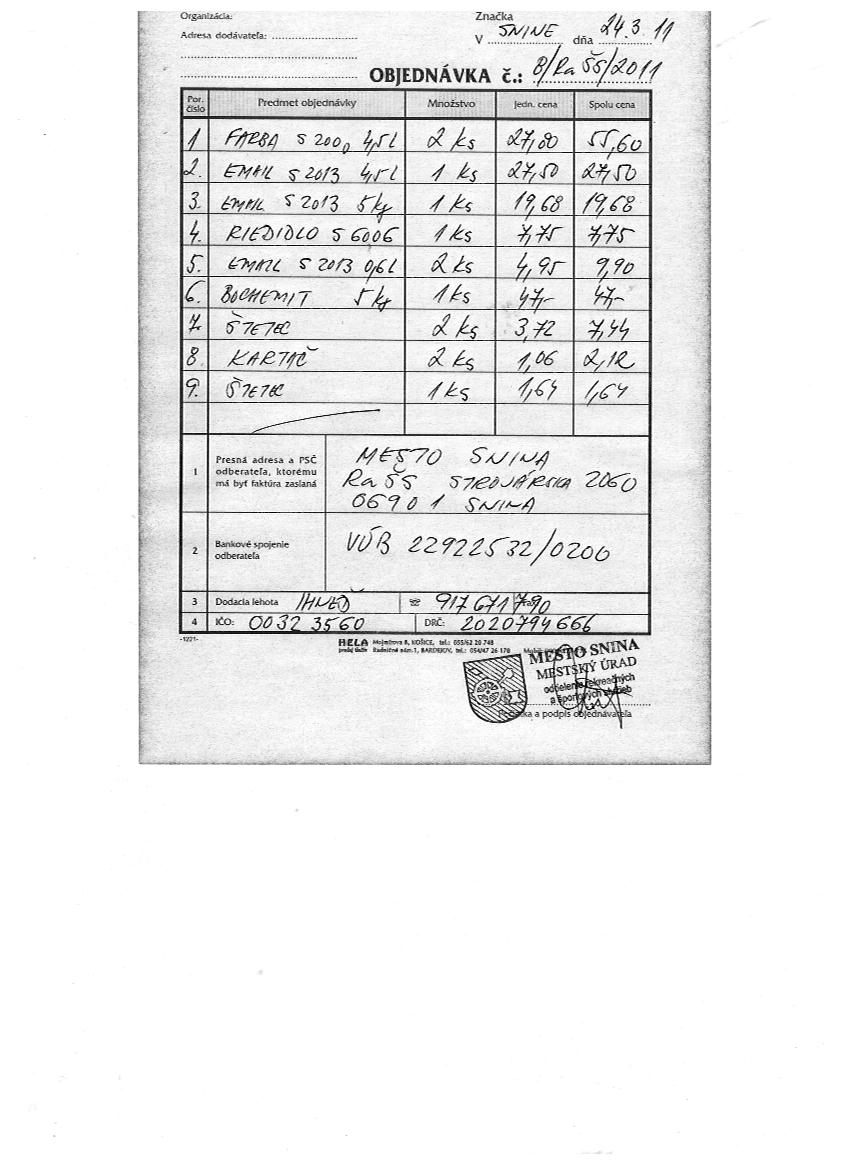 Organizácia:
Značka
Adresa dodávateľa:
V SNINE dňa 24.3.11
OBJEDNÁVKA č.: 8/RaŠS/2011
Por. číslo Predmet objednávky Množstvo Jedn. cena Spolu cena
1 FARBA S 2000 4,5l 2 ks 27,80 55,60
2. EMAIL S 2013 4,5l 1 ks 27,50 27,50
3. EMAIL S 2013 5kg 1 ks 19,68 19,68
4. RIEDIDLO S 6006 1 ks 7,75 7,75
5. EMAIL S 2013 0,6l 2 ks 4,95 9,90
6. BOCHEMIT 5 kg 1 ks 47,- 47,-
7. ŠTETEC 2 ks 3,72 7,44
8. KARTÁČ 2 ks 1,06 2,12
9. ŠTETEC 1 ks 1,64 1,64
1 Presná adresa a PSČ odberateľa, ktorému má byť faktúra zaslaná
MESTO SNINA
RaŠS STROJÁRSKA 2060
06901 SNINA
2 Bankové spojenie odberateľa VÚB 22922532/0200
3 Dodacia lehota IHNEĎ ☏ 917 671 790
4 IČO: 0032 3560 DRČ: 2020794666
-1221-
HELA Mojmírova 8, KOŠICE, tel.: 055/62 20 748
predaj tlačív Radničné nám.1, BARDEJOV, tel.: 054/47 26 178
MESTO SNINA
MESTSKÝ ÚRAD
oddelenie rekreačných
a športových služieb
a podpis objednávateľa